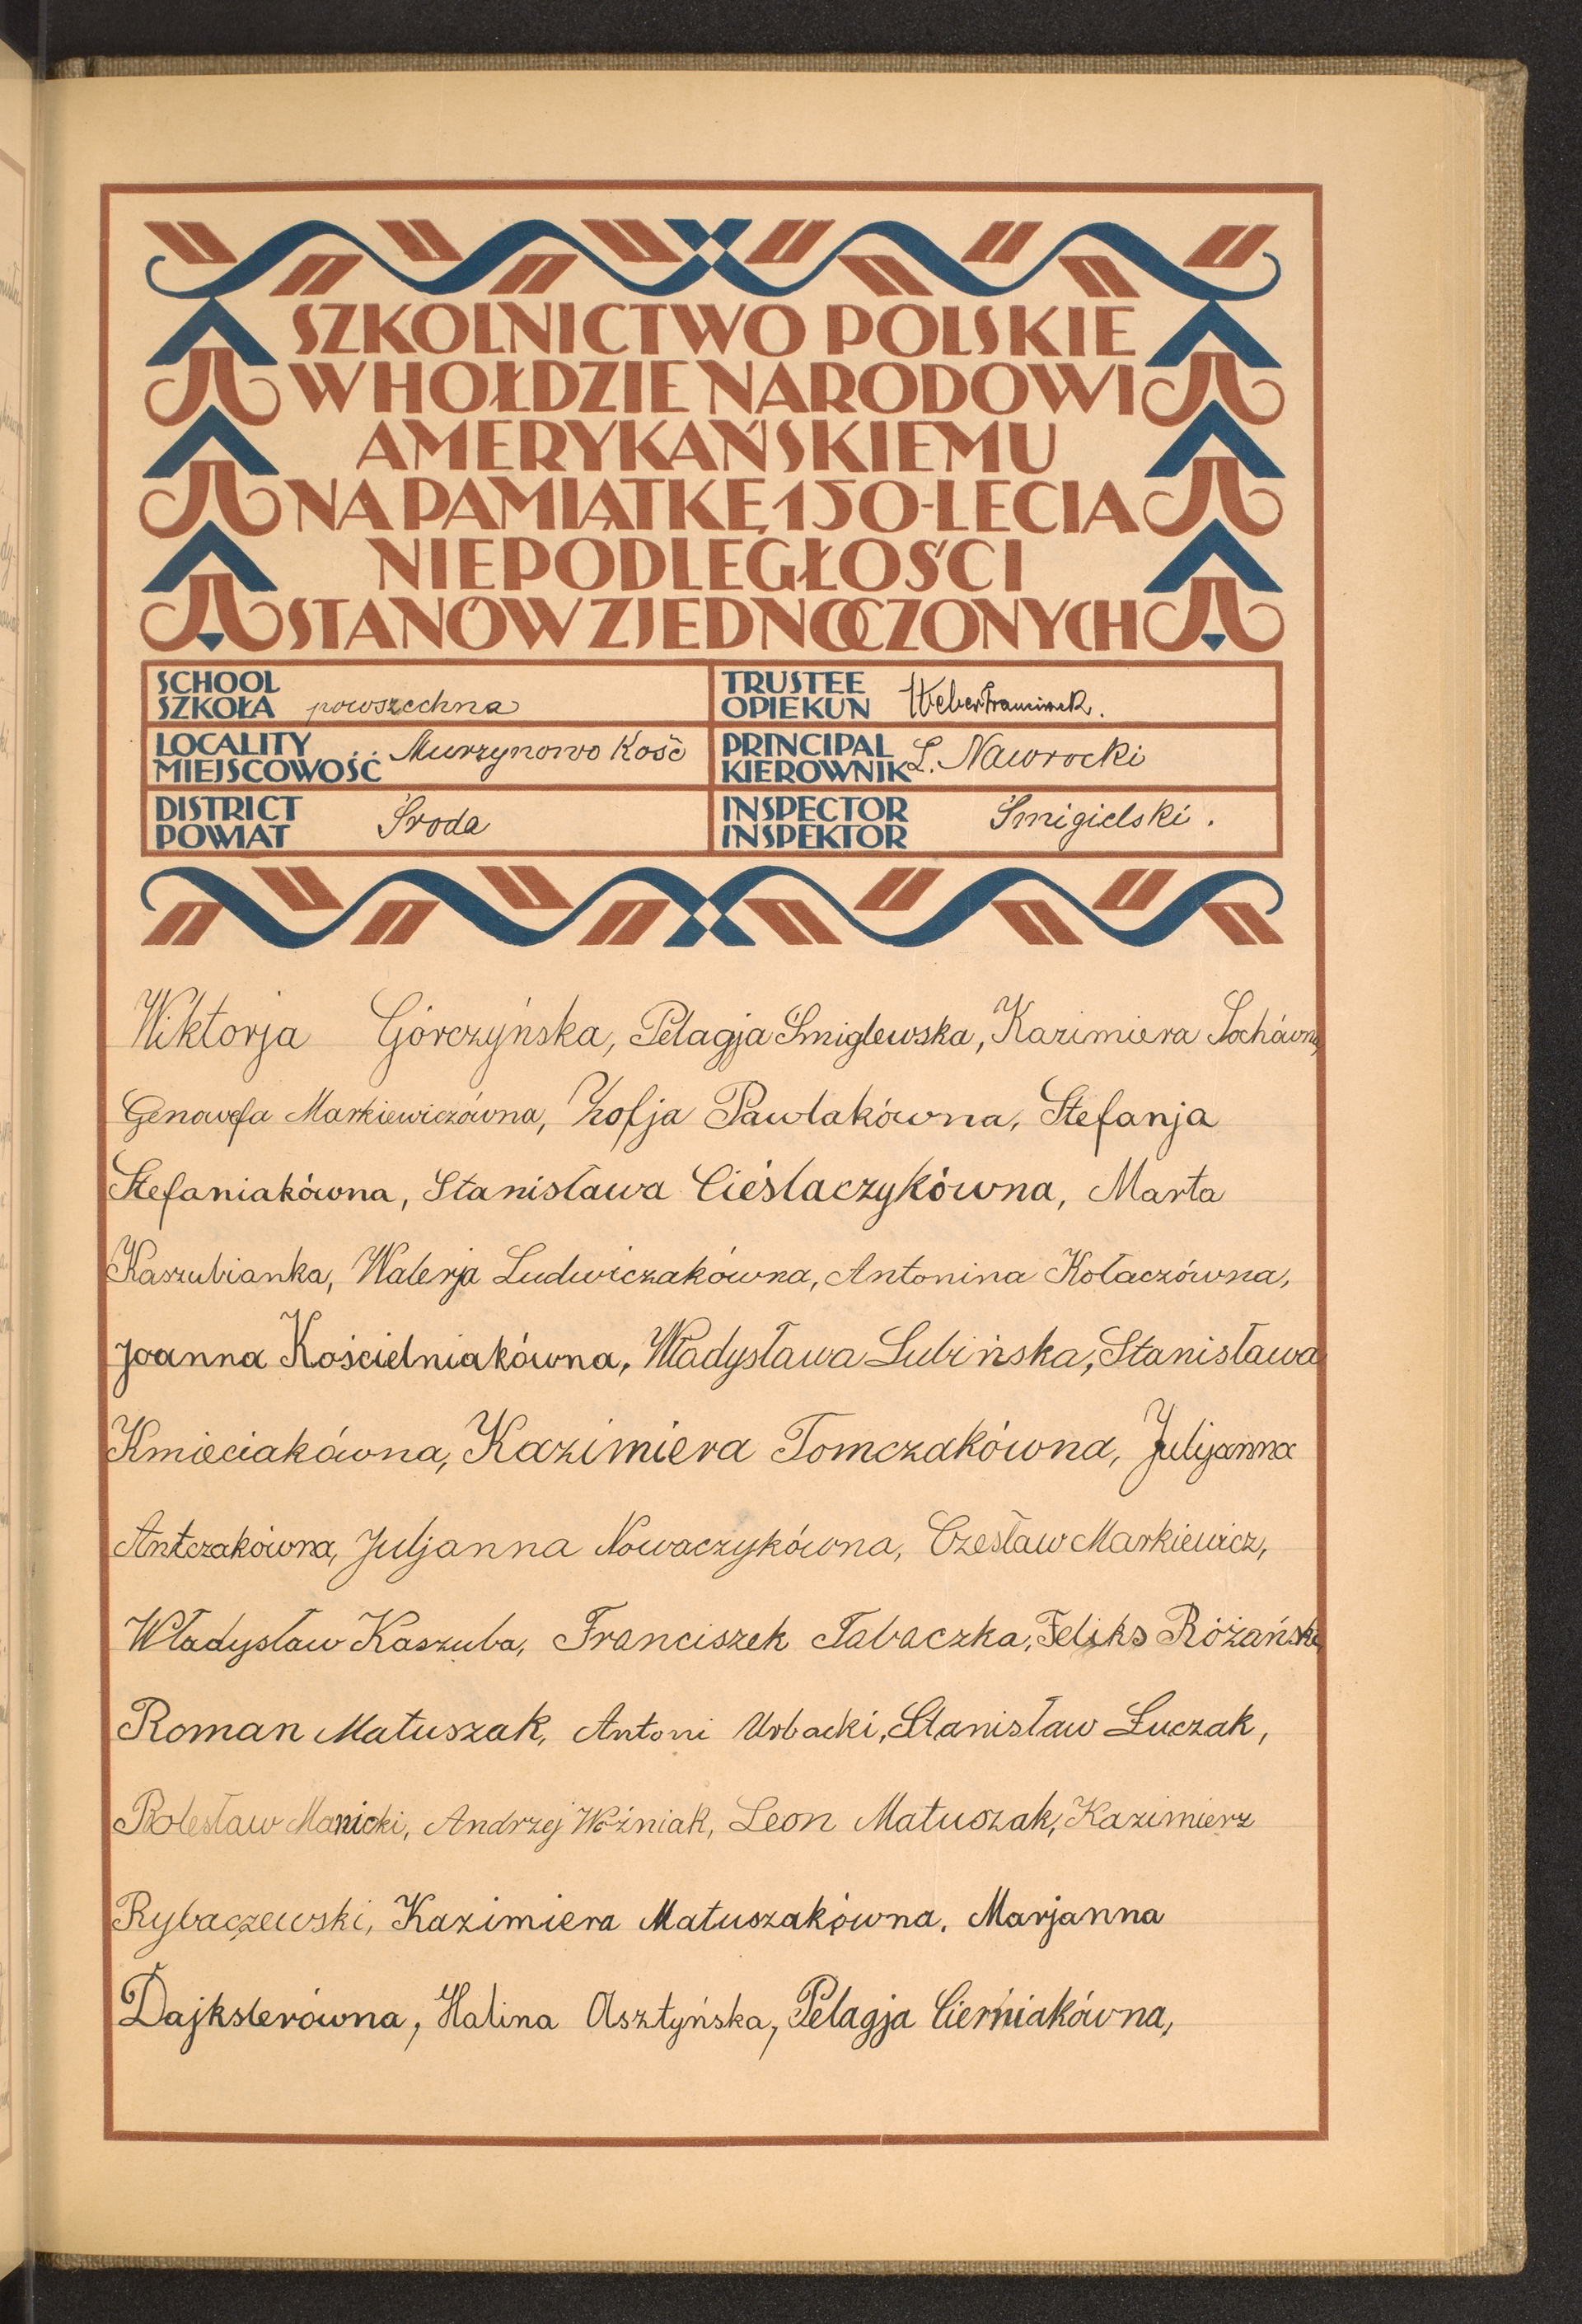 SZKOLNICTWO POLSKIE
W HOŁDZIE NARODOWI
AMERYKAŃSKIEMU
NA PAMIĄTKĘ 150-LECIA
NIEPODLEGŁOŚCI
STANÓW ZJEDNOCZONYCH
SCHOOL
SZKOŁA powszechna
TRUSTEE
OPIEKUN Weber Franciszek.
LOCALITY
MIEJSCOWOŚĆ Murzynowo Kość
PRINCIPAL
KIEROWNIK L. Nawrocki
DISTRICT
POWIAT Środa
INSPECTOR
INSPEKTOR Śmigielski.
Wiktorja Górczyńska, Pelagja Śmiglewska, Kazimiera Sochówna,
Genowefa Markiewiczówna, Zofja Pawlakówna, Stefanja
Stefaniakówna, Stanisława Cieślaczykówna, Marta
Kaszubianka, Walerja Ludwiczakówna, Antonina Kołaczówna,
Joanna Kościelniakówna, Władysława Lubińska, Stanisława
Kmieciakówna, Kazimiera Tomczakówna, Julijanna
Antczakówna, Juljanna Nowaczykówna, Czesław Markiewicz,
Władysław Kaszuba, Franciszek Tabaczka, Feliks Różański,
Roman Matuszak, Antoni Urbacki, Stanisław Łuczak,
Bolesław Manicki, Andrzej Woźniak, Leon Matuszak, Kazimierz
Rybaczewski, Kazimiera Matuszakówna, Marjanna
Dajkslerówna, Halina Olsztyńska, Pelagja Cierniakówna,